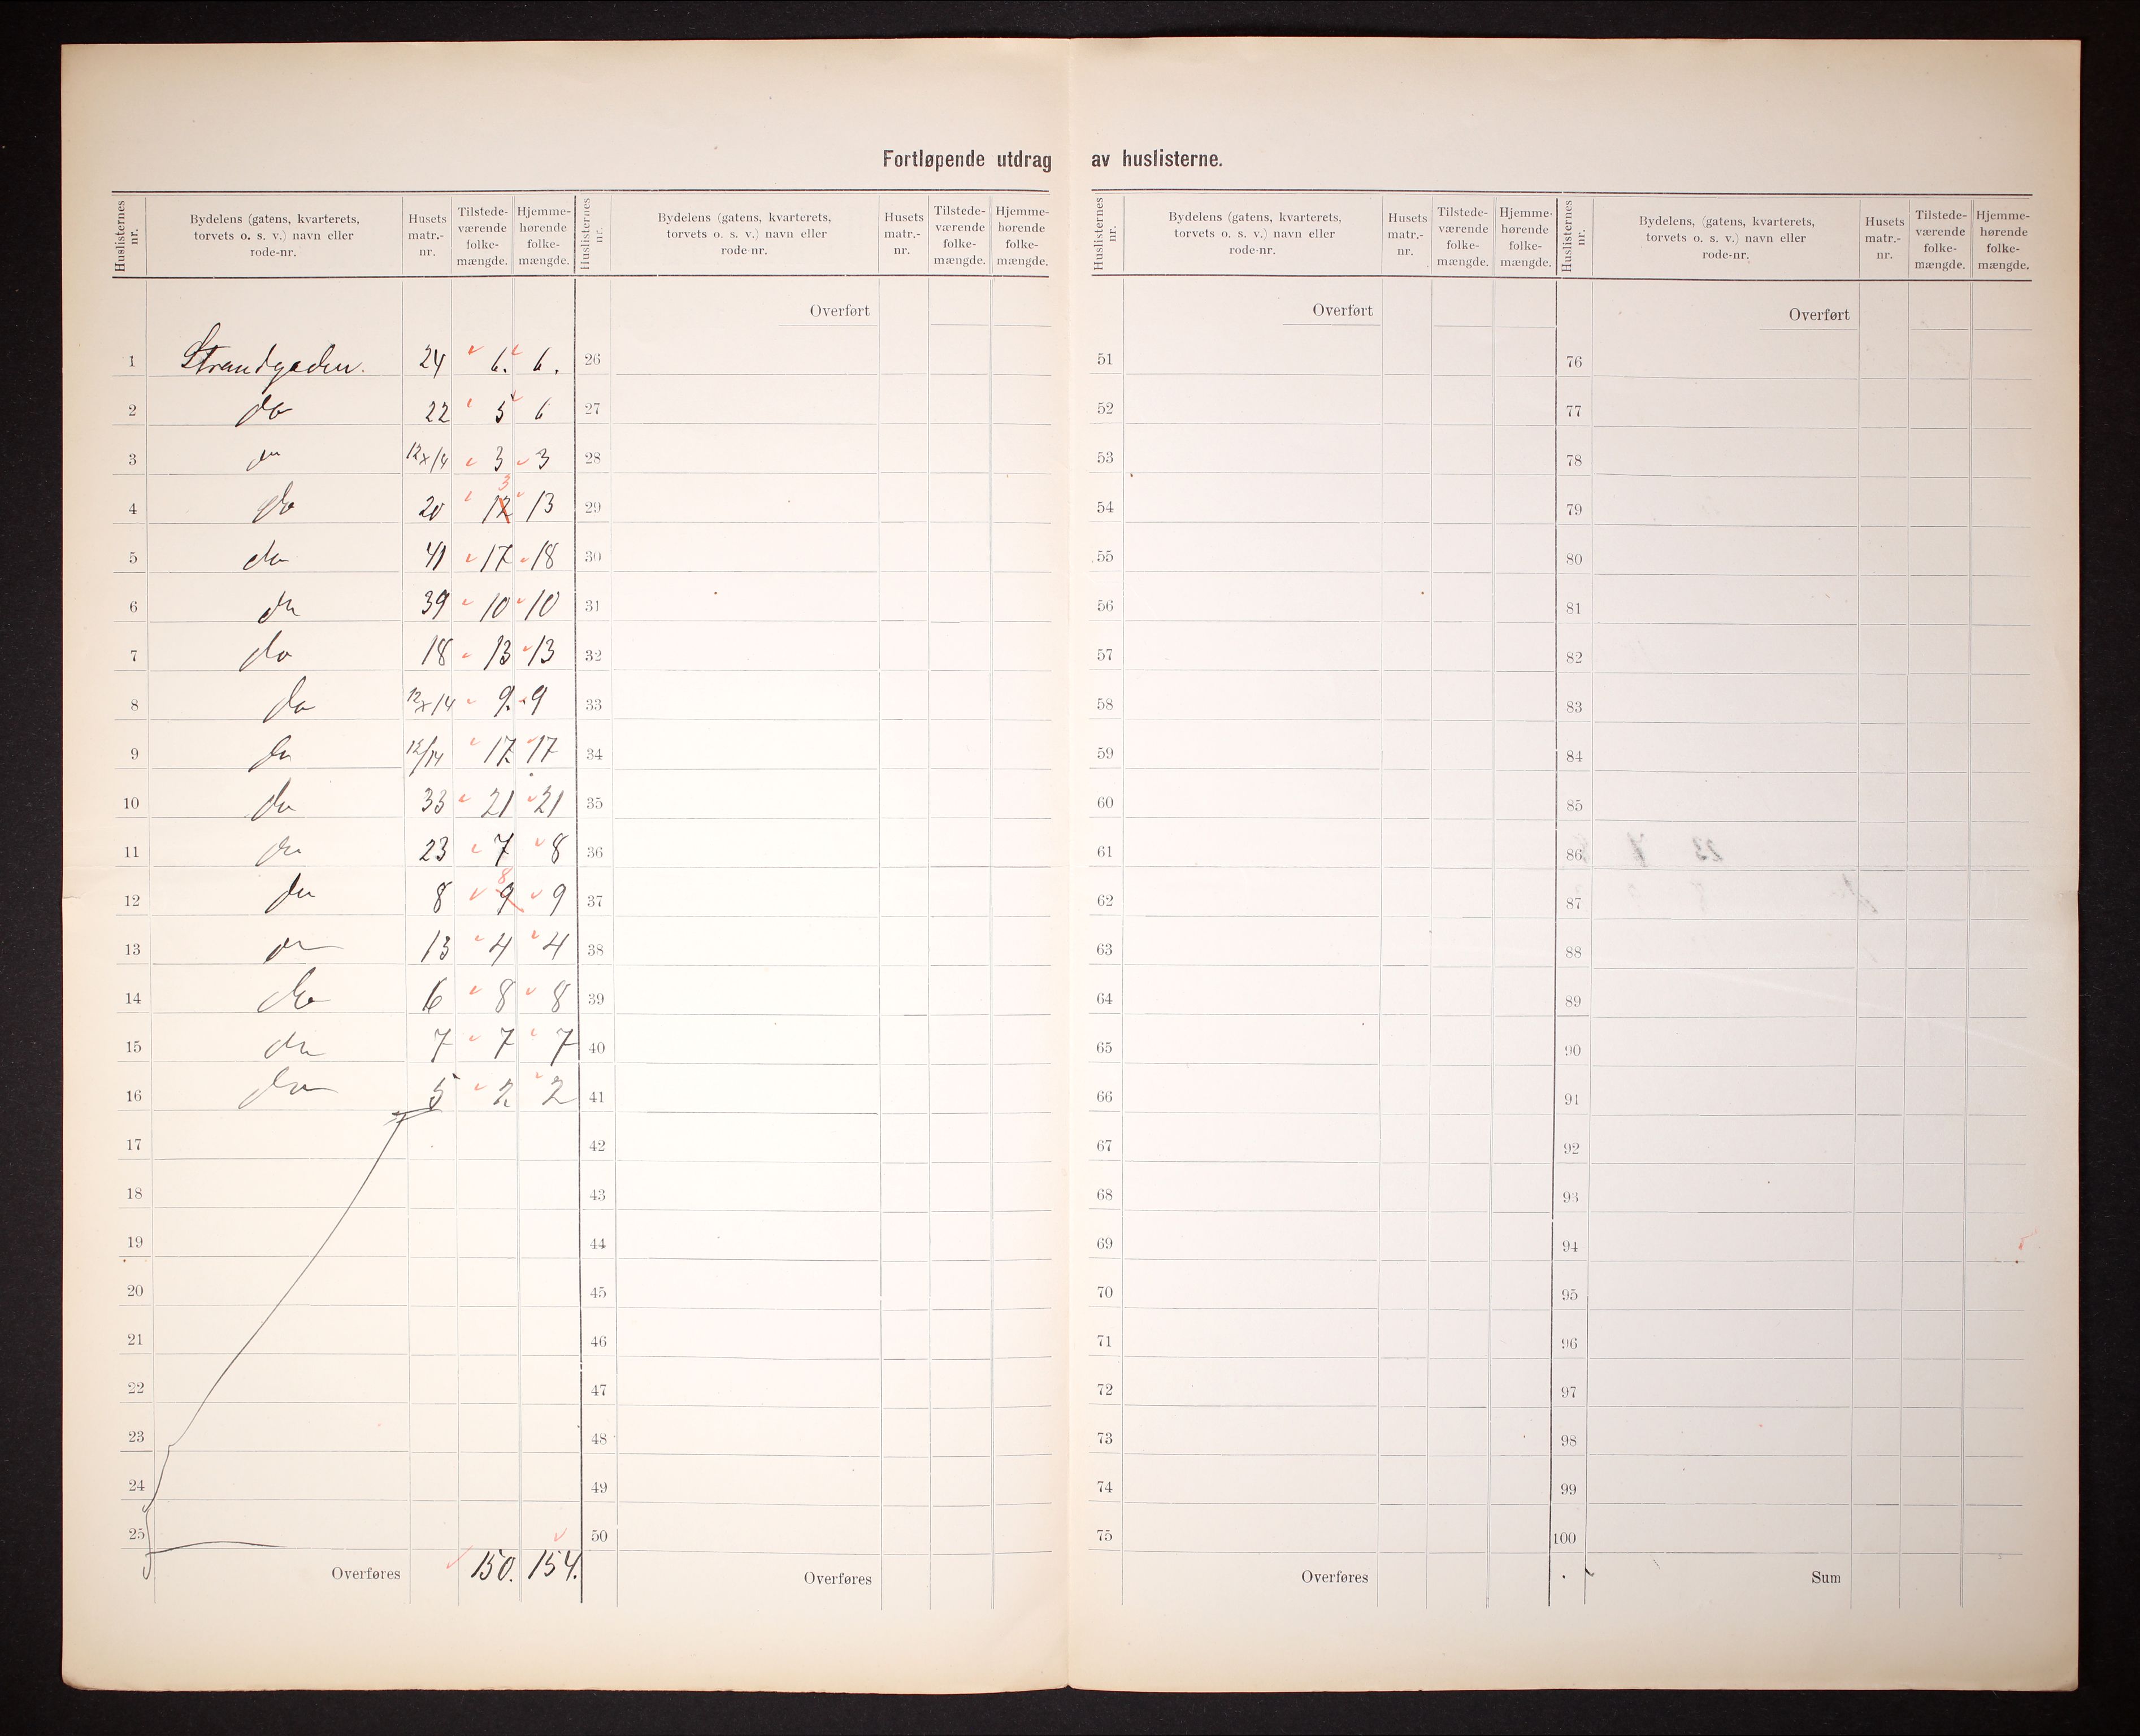 Fortløpende utdrag av huslisterne.
Huslisternes nr. Bydelens (gatens, kvarterets, torvets o. s. v.) navn eller rode-nr. Husets matr.-nr. Tilstede-værende folke-mængde. Hjemme-hørende folke-mængde.
Huslisternes nr. Bydelens (gatens, kvarterets, torvets o. s. v.) navn eller rode-nr. Husets matr.-nr. Tilstede-værende folke-mængde. Hjemme-hørende folke-mængde.
Huslisternes nr. Bydelens (gatens, kvarterets, torvets o. s. v.) navn eller rode-nr. Husets matr.-nr. Tilstede-værende folke-mængde. Hjemme-hørende folke-mængde.
Huslisternes nr. Bydelens, (gatens, kvarterets, torvets o. s. v.) navn eller rode-nr. Husets matr.-nr. Tilstede-værende folke-mængde. Hjemme-hørende folke-mængde.
Overført Overført Overført
1 Strandgaden. 24 6. 6. 26 51 76
2 do 22 5 6 27 52 77
3 do 12x14 3 3 28 53 78
4 do 20 12 3 13 29 54 79
5 do 41 17 18 30 55 80
6 do 39 10 10 31 56 81
7 do 18 13 13 32 57 82
8 do 12x14 9. 9 33 58 83
9 do 12/14 17 17 34 59 84
10 do 33 21 21 35 60 85
11 do 23 7 8 36 61 86
12 do 8 9 8 9 37 62 87
13 do 13 4 4 38 63 88
14 do 6 8 8 39 64 89
15 do 7 7 7 40 65 90
16 do 5 2 2 41 66 91
17 42 67 92
18 43 68 93
19 44 69 94
20 45 70 95
21 46 71 96
22 47 72 97
23 48 73 98
24 49 74 99
25 50 75 100
Overføres 150. 154. Overføres Overføres Sum